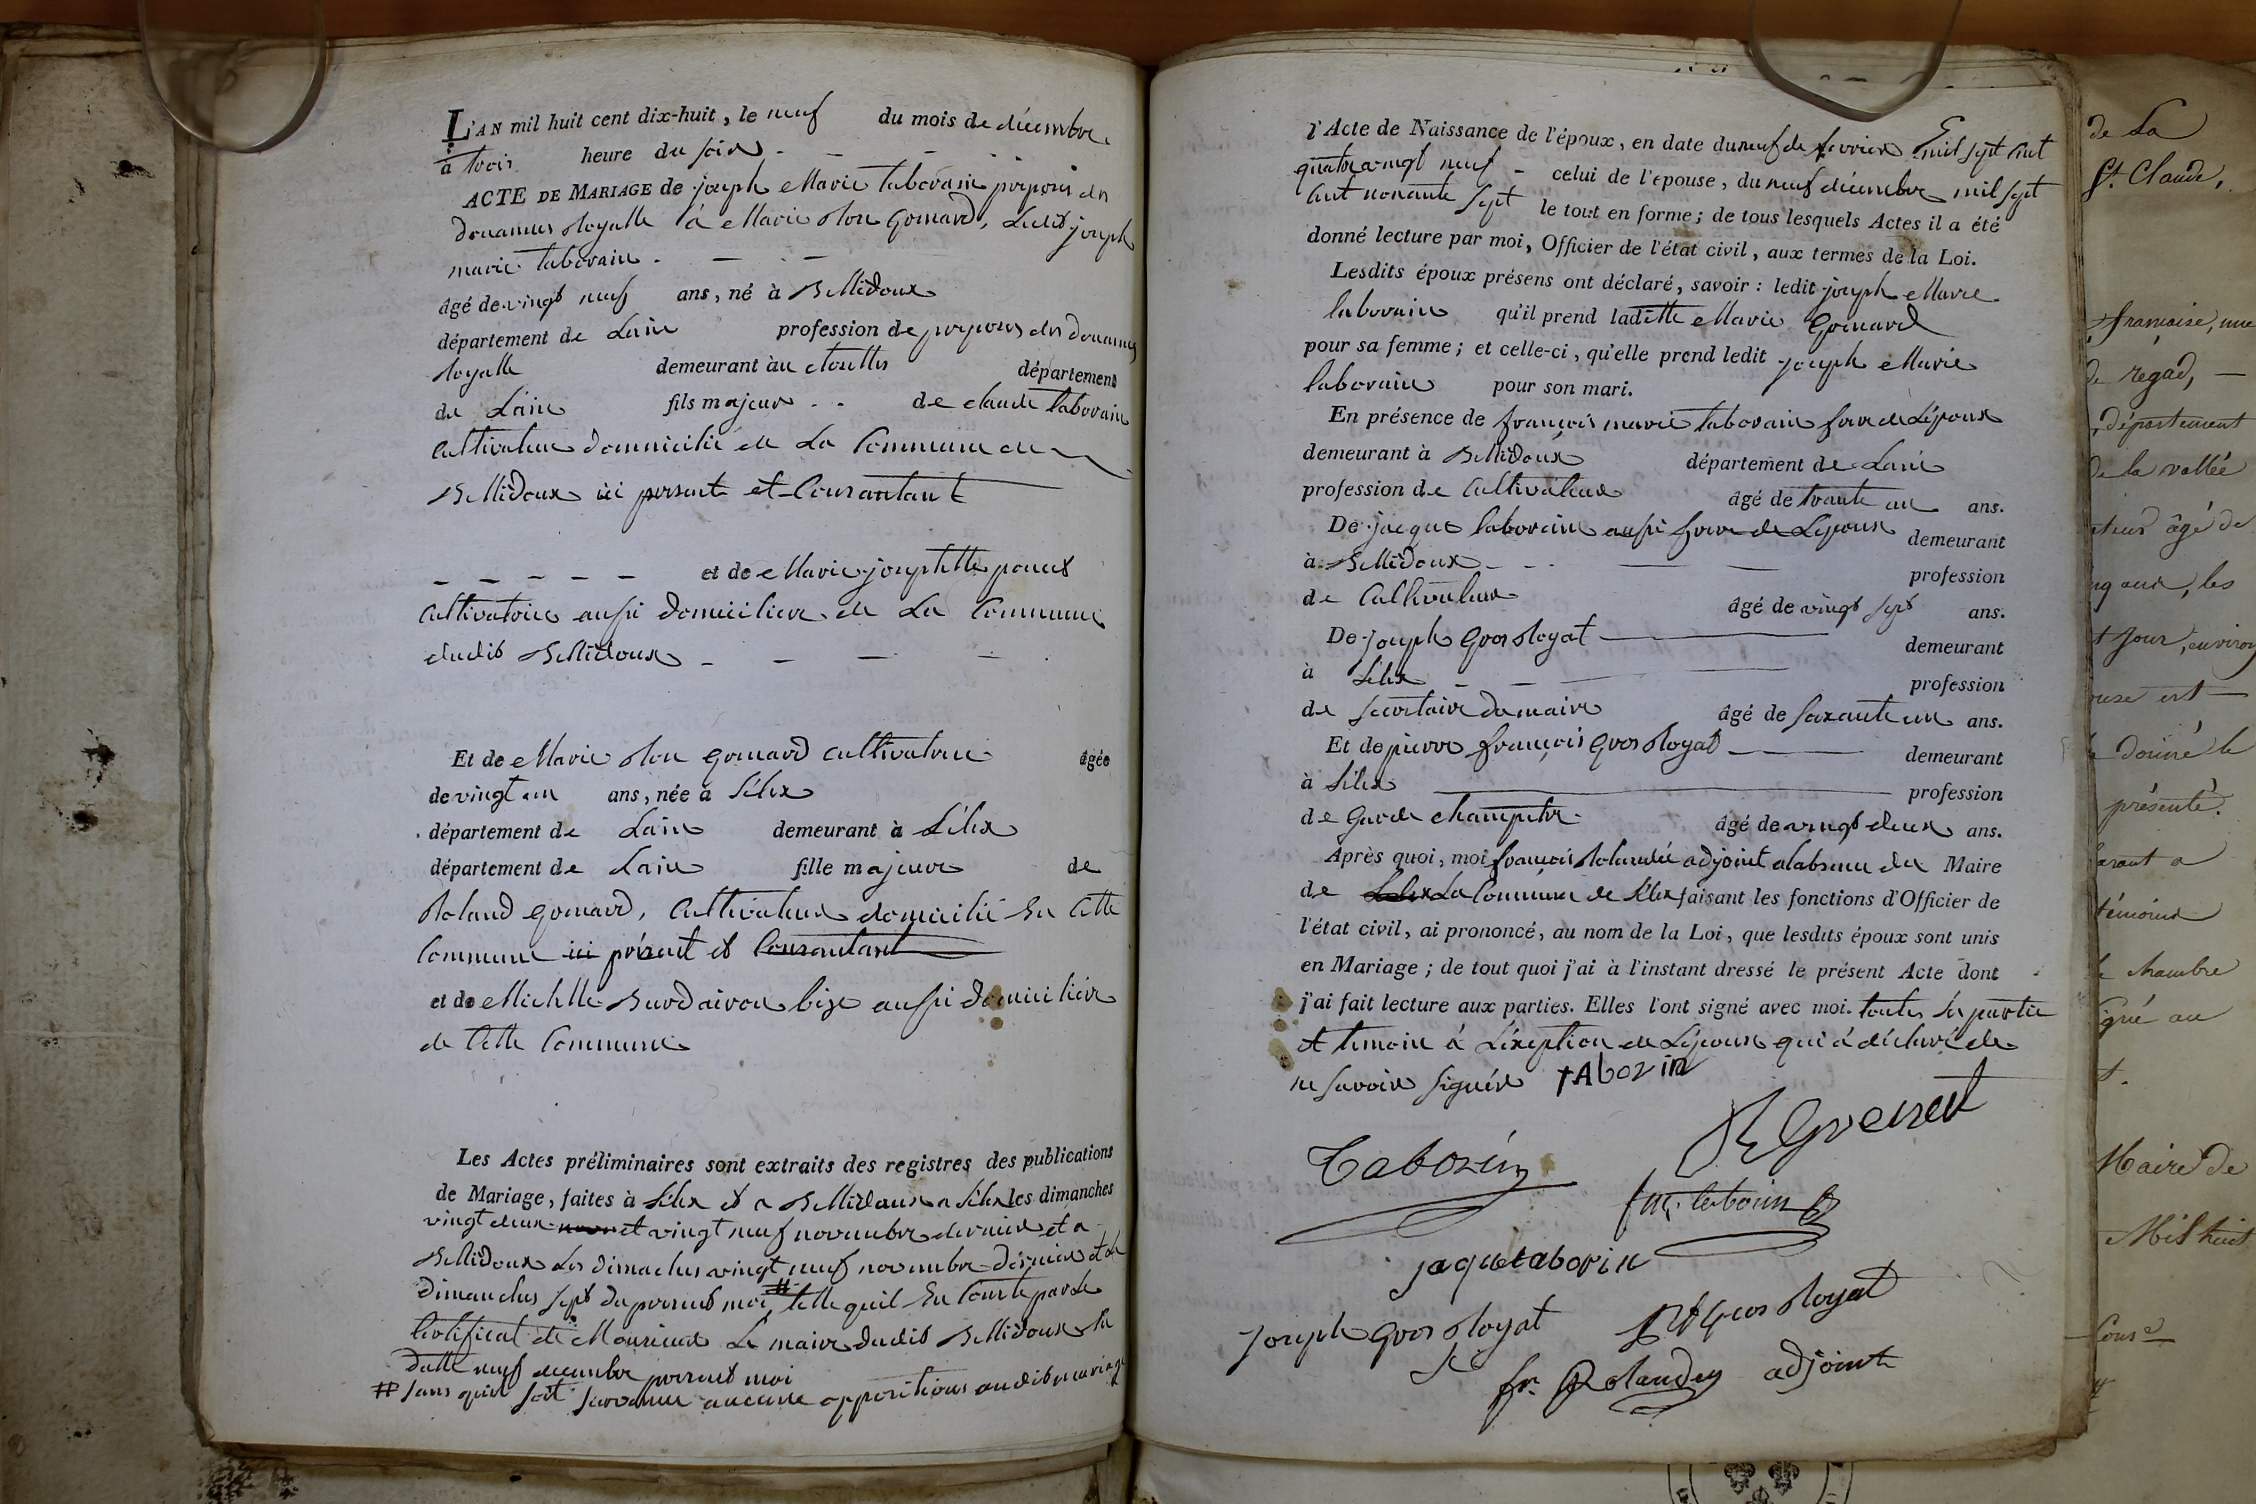 L'AN mil huit cent dix-huit, le neuf du mois de décembre
à trois heure du soir
ACTE DE MARIAGE de joseph Marie taborain préposé des
douannes Royalle à Marie Rose Grenard, Ledit joseph
marie taborain
âgé de vingt neuf ans, né à Bellidoux
département de Lain profession de préposés des douannes
Royalle demeurant àu département
de L'ain fils majeur de claude taborain
Cultivateur domicilié de La Commune de
Bellidoux ici présent et Consantant
et de Marie josephtte poncet
Cultivatrice aussi domiciliée de La Commune
dudit Bellidoux
Et de Marie Rose Grenard cultivatrice âgée
de vingt un ans, née à Lélex
département de Lain demeurant à Lélex
département de Lain fille majeure de
Roland grenard, Cultivateur domicilié En Cette
Commune ici présent et Consantant
et de Michelle aussi domiciliée
de Cette Commune
Les Actes préliminaires sont extraits des registres des publications
de Mariage, faites à Lélex et a Bellidoux a Lélex les dimanches
vingt deux et vingt neuf novembre dernier et a
Bellidoux Les dimaches vingt neuf novembre dernier et Le
dimanches sept du present moi # telle quil En Conste par Le
Certificat de Monsieur Le maire dudit Bellidoux En
datte neuf decembre present moi
# sans quil soit survenue aucune oppositions audit mariage
l'Acte de Naissance de l'époux, en date du neuf de fevrier mil sept cent
quatre vingt neuf celui de l'épouse, du neuf décembre mil sept
cent nonante sept le tout en forme; de tous lesquels Actes il a été
donné lecture par moi, Officier de l'état civil, aux termes de la Loi.
Lesdits époux présens ont déclaré, savoir: ledit joseph Marie
taborain qu'il prend ladette Marie Grenard
pour sa femme; et celle-ci, qu'elle prend ledit joseph Marie
taborain pour son mari.
En présence de françois marie taborain frere de L'époux
demeurant à Bellidoux département de Lain
profession de Cultivateur âgé de trante un ans.
De jacque taborain aussi frere de Lepoux demeurant
à Bellidoux profession
de Cultivateur âgé de vingt sept ans.
De joseph Gros Royat demeurant
à Lélex profession
de secretaire de maire âgé de soxante un ans.
Et de pierre françois Gros Royat demeurant
à Lélex profession
de Garde champetre âgé de vingt deux ans.
Après quoi, moi françois Rolandée adjoint alabsence du Maire
de La Commune de Lélex faisant les fonctions d'Officier de
l'état civil, ai prononcé, au nom de la Loi, que lesdits époux sont unis
en Mariage; de tout quoi j'ai à l'instant dressé le présent Acte dont
j'ai fait lecture aux parties. Elles l'ont signé avec moi. toutes Les partie
et temoin à L'exeption de L'épouse qui à déclaré de
ne savoir signér tAborin
R Grenard
taborin
f m taborin
jaquetaborin
joseph Gros Royat
pf Gros Royat
fr. Rolandez adjoint
de La
St. Claude,
française, une
de regad,
département
de la vallée
âgé de
ans, les
jour, environ
est
donné le
présenté
témoins
chambre
signé au
Maire de
Mil huit